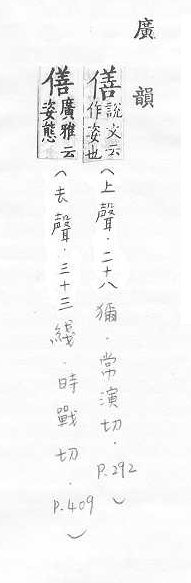 廣韻
僐說文云作姿也(上聲.二十八獮.常演切.P.292)
僐廣雅云姿態(去聲.三十三綫.時戰切.P.409)